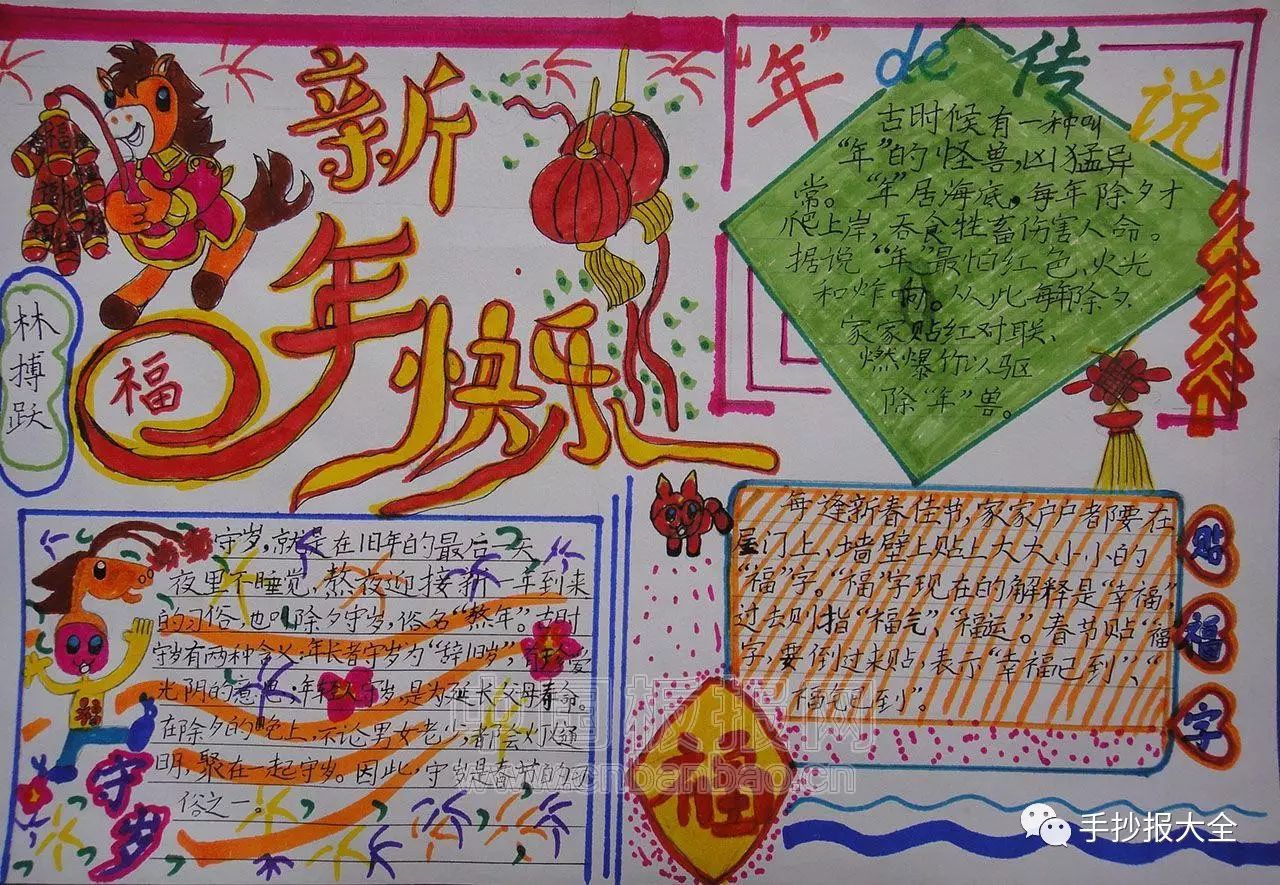 新
年快乐
福
林搏跃
"年"de传说
古时候有一种叫
"年"的怪兽,凶猛异
常。"年"居海底,每年除夕才
爬上岸,吞食牲畜伤害人命。
据说"年"最怕红色、火光
和炸响。从此每年除夕
家家贴红对联、
燃爆竹以驱
除"年"兽。
守岁,就是在旧年的最后一天
夜里不睡觉,熬夜迎接新一年到来
的习俗,也叫除夕守岁,俗名"熬年"。古时
守岁有两种含义:年长者守岁为"辞旧岁",
光阴的意思;年轻人守岁,是为延长父母寿命。
在除夕的晚上,不论男女老少,都会灯火通
明,聚在一起守岁。因此,守岁是春节的习
俗之一。
守岁
福
每逢新春佳节,家家户户都要在
屋门上、墙壁上贴上大大小小的
"福"字。"福"字现在的解释是"幸福",
过去则指"福气"、"福运"。春节贴"福"
字,要倒过来贴,表示"幸福已到"、"
福气已到"。
贴福字
福
中国板报网
www.cnbanbao.cn
手抄报大全